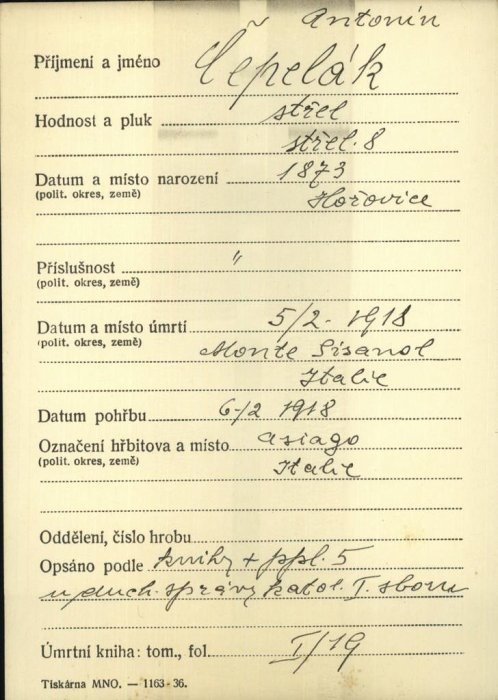 Antonín
Příjmení a jméno Čepelák
Hodnost a pluk střel
střel. 8
Datum a místo narození 1873
(polit. okres, země) Hořovice
Příslušnost "
(polit. okres, země)
Datum a místo úmrtí 5/2 - 1918
(polit. okres, země) Monte Sisanol
Italie
Datum pohřbu 6/2 1918
Označení hřbitova a místo asiago
(polit. okres, země) Italie
Oddělení, číslo hrobu
Opsáno podle knihy + ppl. 5
u duch. správy katol. I. sboru
Úmrtní kniha: tom., fol. I/19
Tiskárna MNO. — 1163-36.